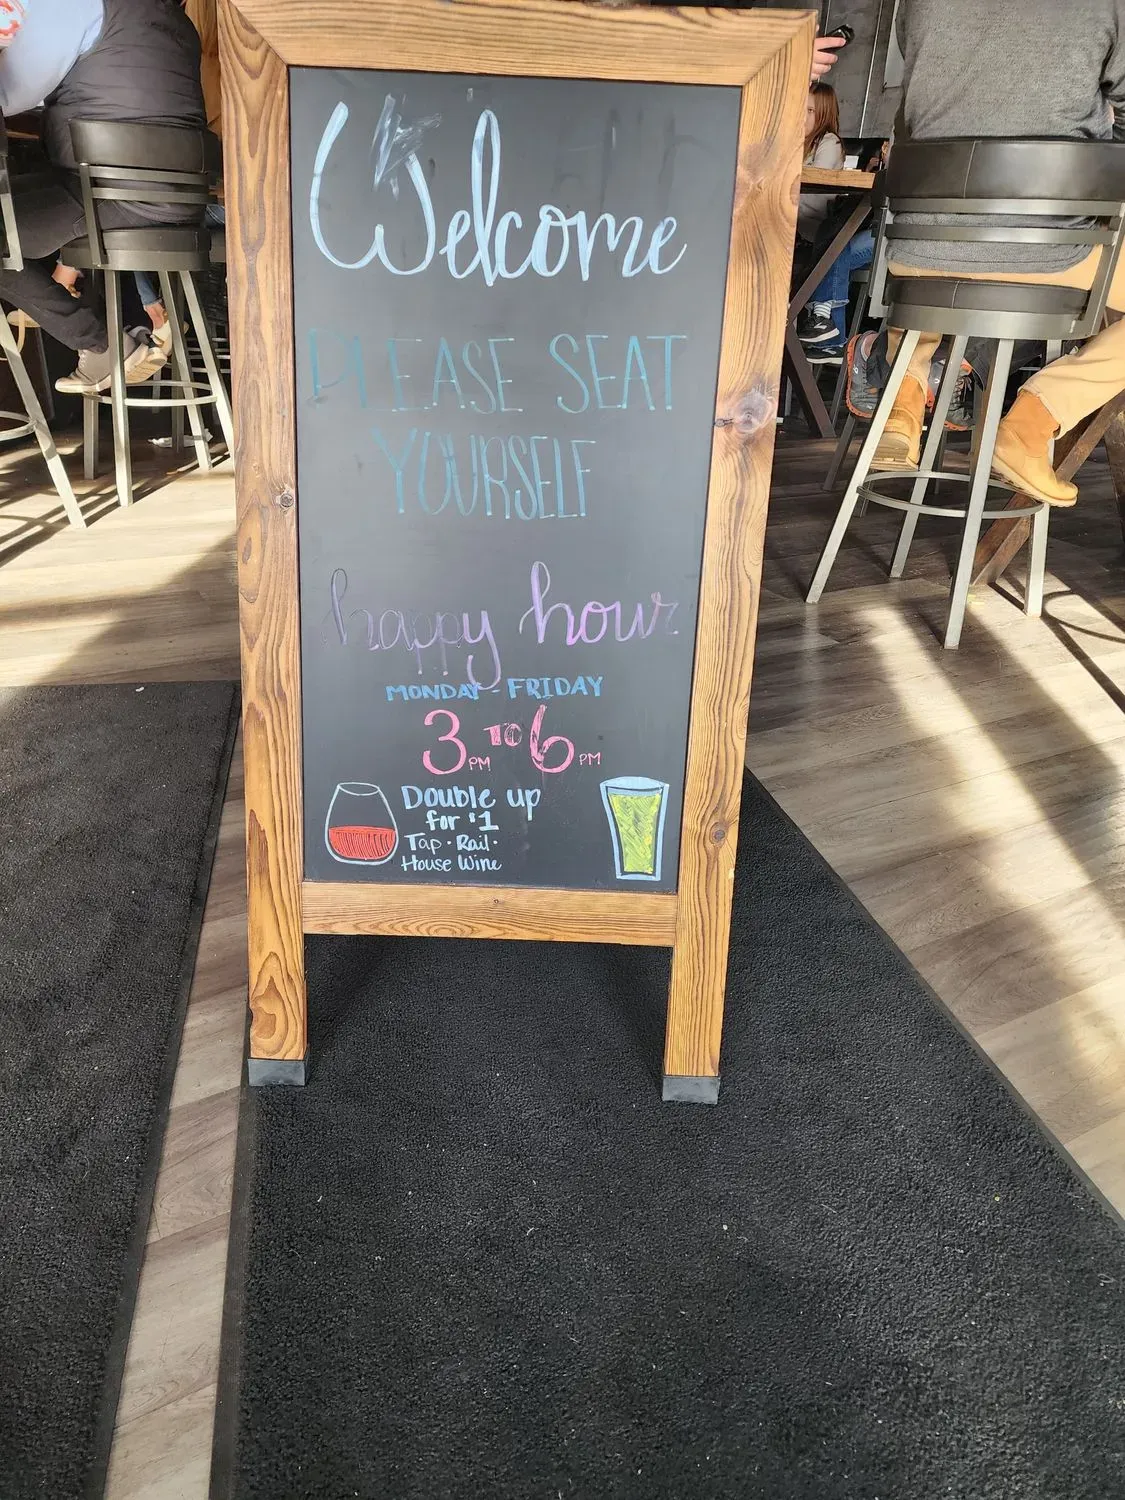 Welcome
PLEASE SEAT
YOURSELF
happy hour
MONDAY - FRIDAY
3 PM TO 6 PM
Double up
for $1
Tap · Rail ·
House Wine